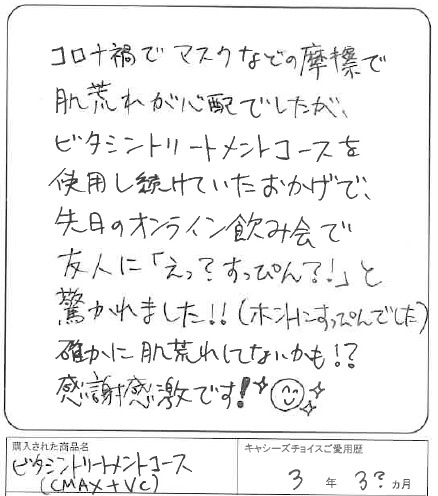 コロナ禍でマスクなどの摩擦で
肌荒れが心配でしたが、
ビタミントリートメントコースを
使用し続けていたおかげで、
先日のオンライン飲み会で
友人に「えっ?すっぴん?!」と
驚かれました!!(ホントにすっぴんでした)
確かに肌荒れしてないかも!?
感謝感激です!
購入された商品名
ビタミントリートメントコース
(CMAX+VC)
キャシーズチョイスご愛用歴
3年3?ヵ月